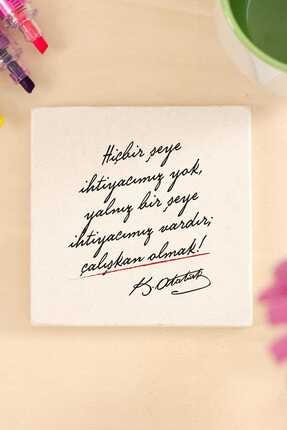 Hiçbir şeye
ihtiyacımız yok,
yalnız bir şeye
ihtiyacımız vardır;
çalışkan olmak!
K. Atatürk